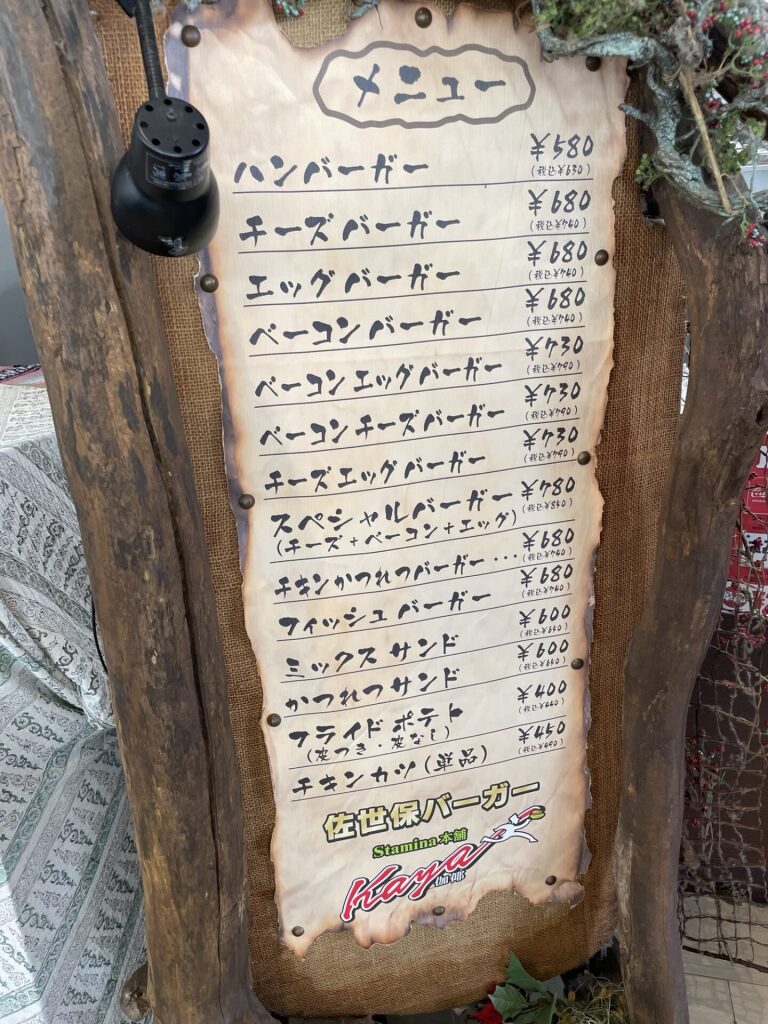 メニュー
ハンバーガー ¥580
(税込¥630)
チーズバーガー ¥680
(税込¥740)
エッグバーガー ¥680
(税込¥740)
ベーコンバーガー ¥680
(税込¥740)
ベーコンエッグバーガー ¥730
(税込¥790)
ベーコンチーズバーガー ¥730
(税込¥790)
チーズエッグバーガー ¥730
(税込¥790)
スペシャルバーガー ¥780
(チーズ+ベーコン+エッグ) (税込¥850)
チキンかつれつバーガー… ¥680
(税込¥740)
フィッシュバーガー ¥680
(税込¥740)
ミックスサンド ¥600
(税込¥650)
かつれつサンド ¥600
(税込¥650)
フライドポテト ¥400
(皮つき・皮なし)
チキンカツ(単品) ¥450
(税込¥490)
佐世保バーガー
Stamina本舗
Kaya
伽哪